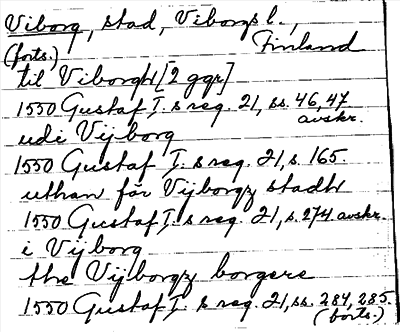 Viborg, stad, Viborgs l.,
(forts.) Finland
til Viborgh [2 ggr]
1550 Gustaf I:s reg. 21, ss. 46, 47
avskr.
udi Vijborg
1550 Gustaf I:s reg. 21, s. 165.
uthan för Vijborgz stadh
1550 Gustaf I:s reg. 21, s. 274 avskr.
i Vijborg
the Vijborgz borgere
1550 Gustaf I:s reg. 21, ss. 284, 285.
(forts.)